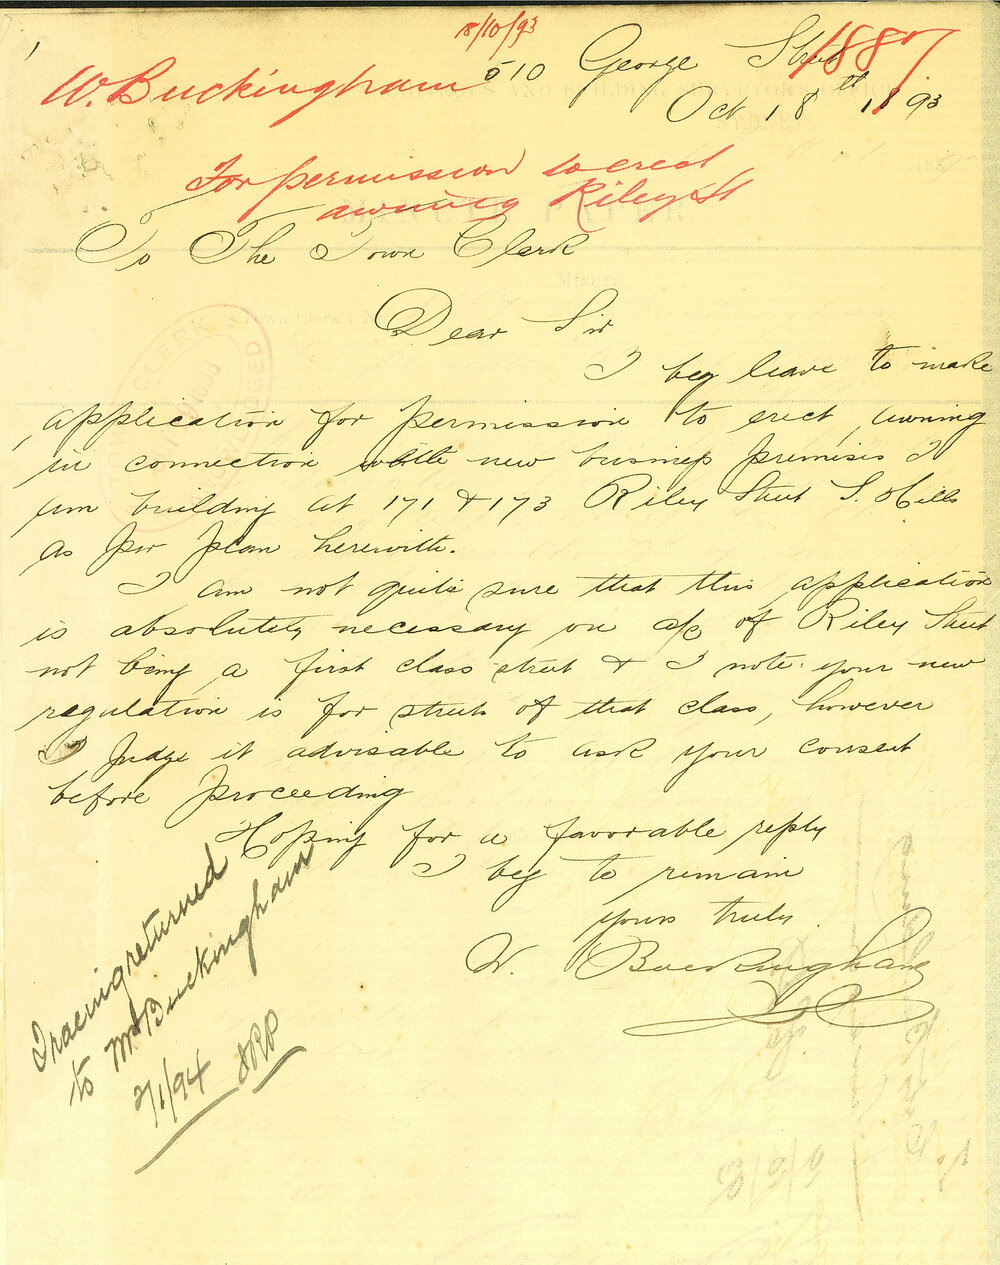 18/10/93
W. Buckingham
1887
510 George Street
Oct 18th 1893
For permission to erect
awning Riley St
To The Town Clerk
Dear Sir
I beg leave to make
application for permission to erect awning
in connection with new business premises I
am building at 171 & 173 Riley Street S. Hills
as per plan herewith.
I am not quite sure that this application
is absolutely necessary on a/c of Riley Street
not being a first class street & I note your new
regulation is for streets of that class, however
I judge it advisable to ask your consent
before proceeding
Hoping for a favorable reply
I beg to remain
yours truly
W. Buckingham
Tracing returned
to Mr Buckingham
2/1/94
MINUTE PAPER
MINUTE
TOWN CLERK